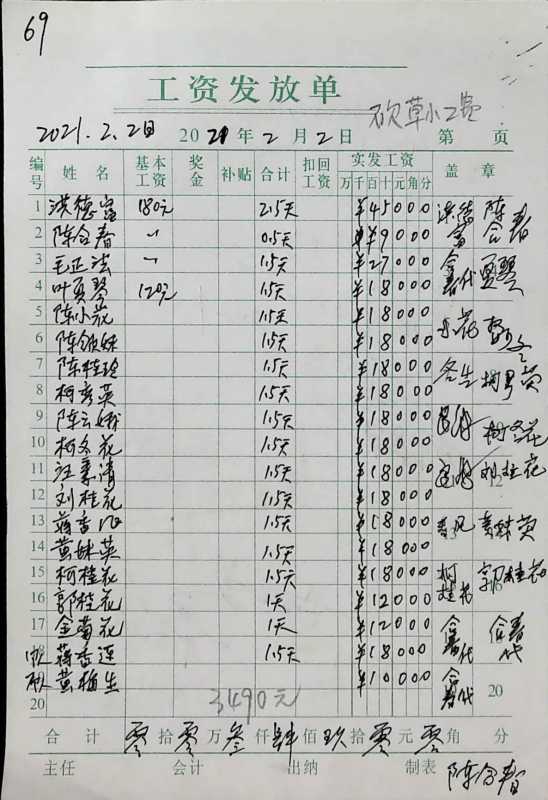 69
工资发放单
砍草小工费
2021.2.2日 2021年2月2日 第 页
编号 姓名 基本工资 奖金 补贴 合计 扣回工资 实发工资 万千百十元角分 盖章
1 洪德富 180元 2.5天 ¥45000 洪德富 陈合春
2 陈合春 〃 0.5天 ¥9000
3 毛正法 〃 1.5天 ¥27000 合春代
4 叶夏琴 120元 1.5天 ¥18000
5 陈小花 1.5天 ¥18000 小花
6 陈领妹 1.5天 ¥18000
7 陈桂珍 1.5天 ¥18000
8 柯秀英 1.5天 ¥18000 柯秀英
9 陈云娥 1.5天 ¥18000
10 柯冬花 1.5天 ¥18000 柯冬花
11 汪素清 1.5天 ¥18000
12 刘桂花 1.5天 ¥18000 刘桂花 12
13 蒋春风 1.5天 ¥18000 春风 黄妹英
14 黄妹英 1.5天 ¥18000
15 柯桂花 1.5天 ¥18000 柯桂花 郭桂花
16 郭桂花 1天 ¥12000
17 金菊花 1天 ¥12000 合春代 合春代
蒋香连 1.5天 ¥18000
黄梅生 ¥10000 合春代
20 3490元 20
合计 零拾零万叁仟肆佰玖拾零元零角 分
主任 会计 出纳 制表 陈合春